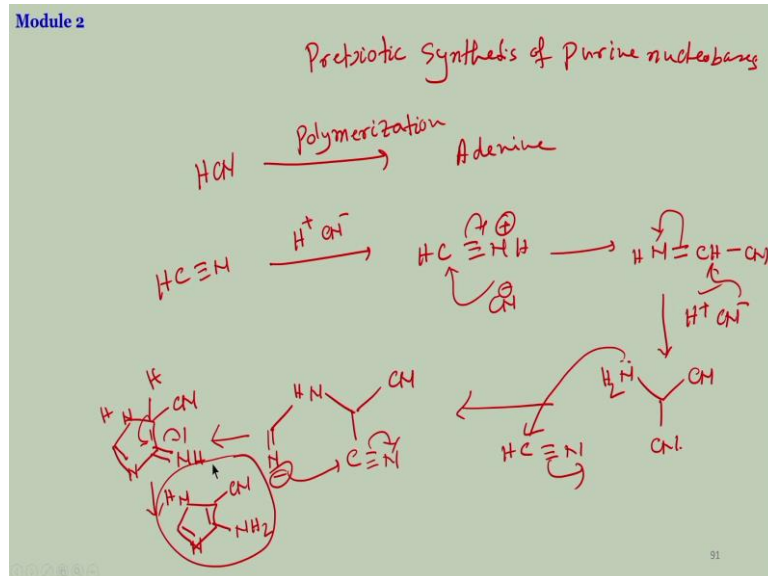 Module 2
Prebiotic Synthesis of Purine nucleobases
HCN Polymerization Adenine
HC≡N H⁺ CN⁻ HC≡NH ⊕ CN ⊖ HN=CH-CN
H⁺ CN⁻
H₂N̈ CN CN
HC≡N
HN CN C≡N N ⊖
H HN CN N NH
HN CN N NH₂
91